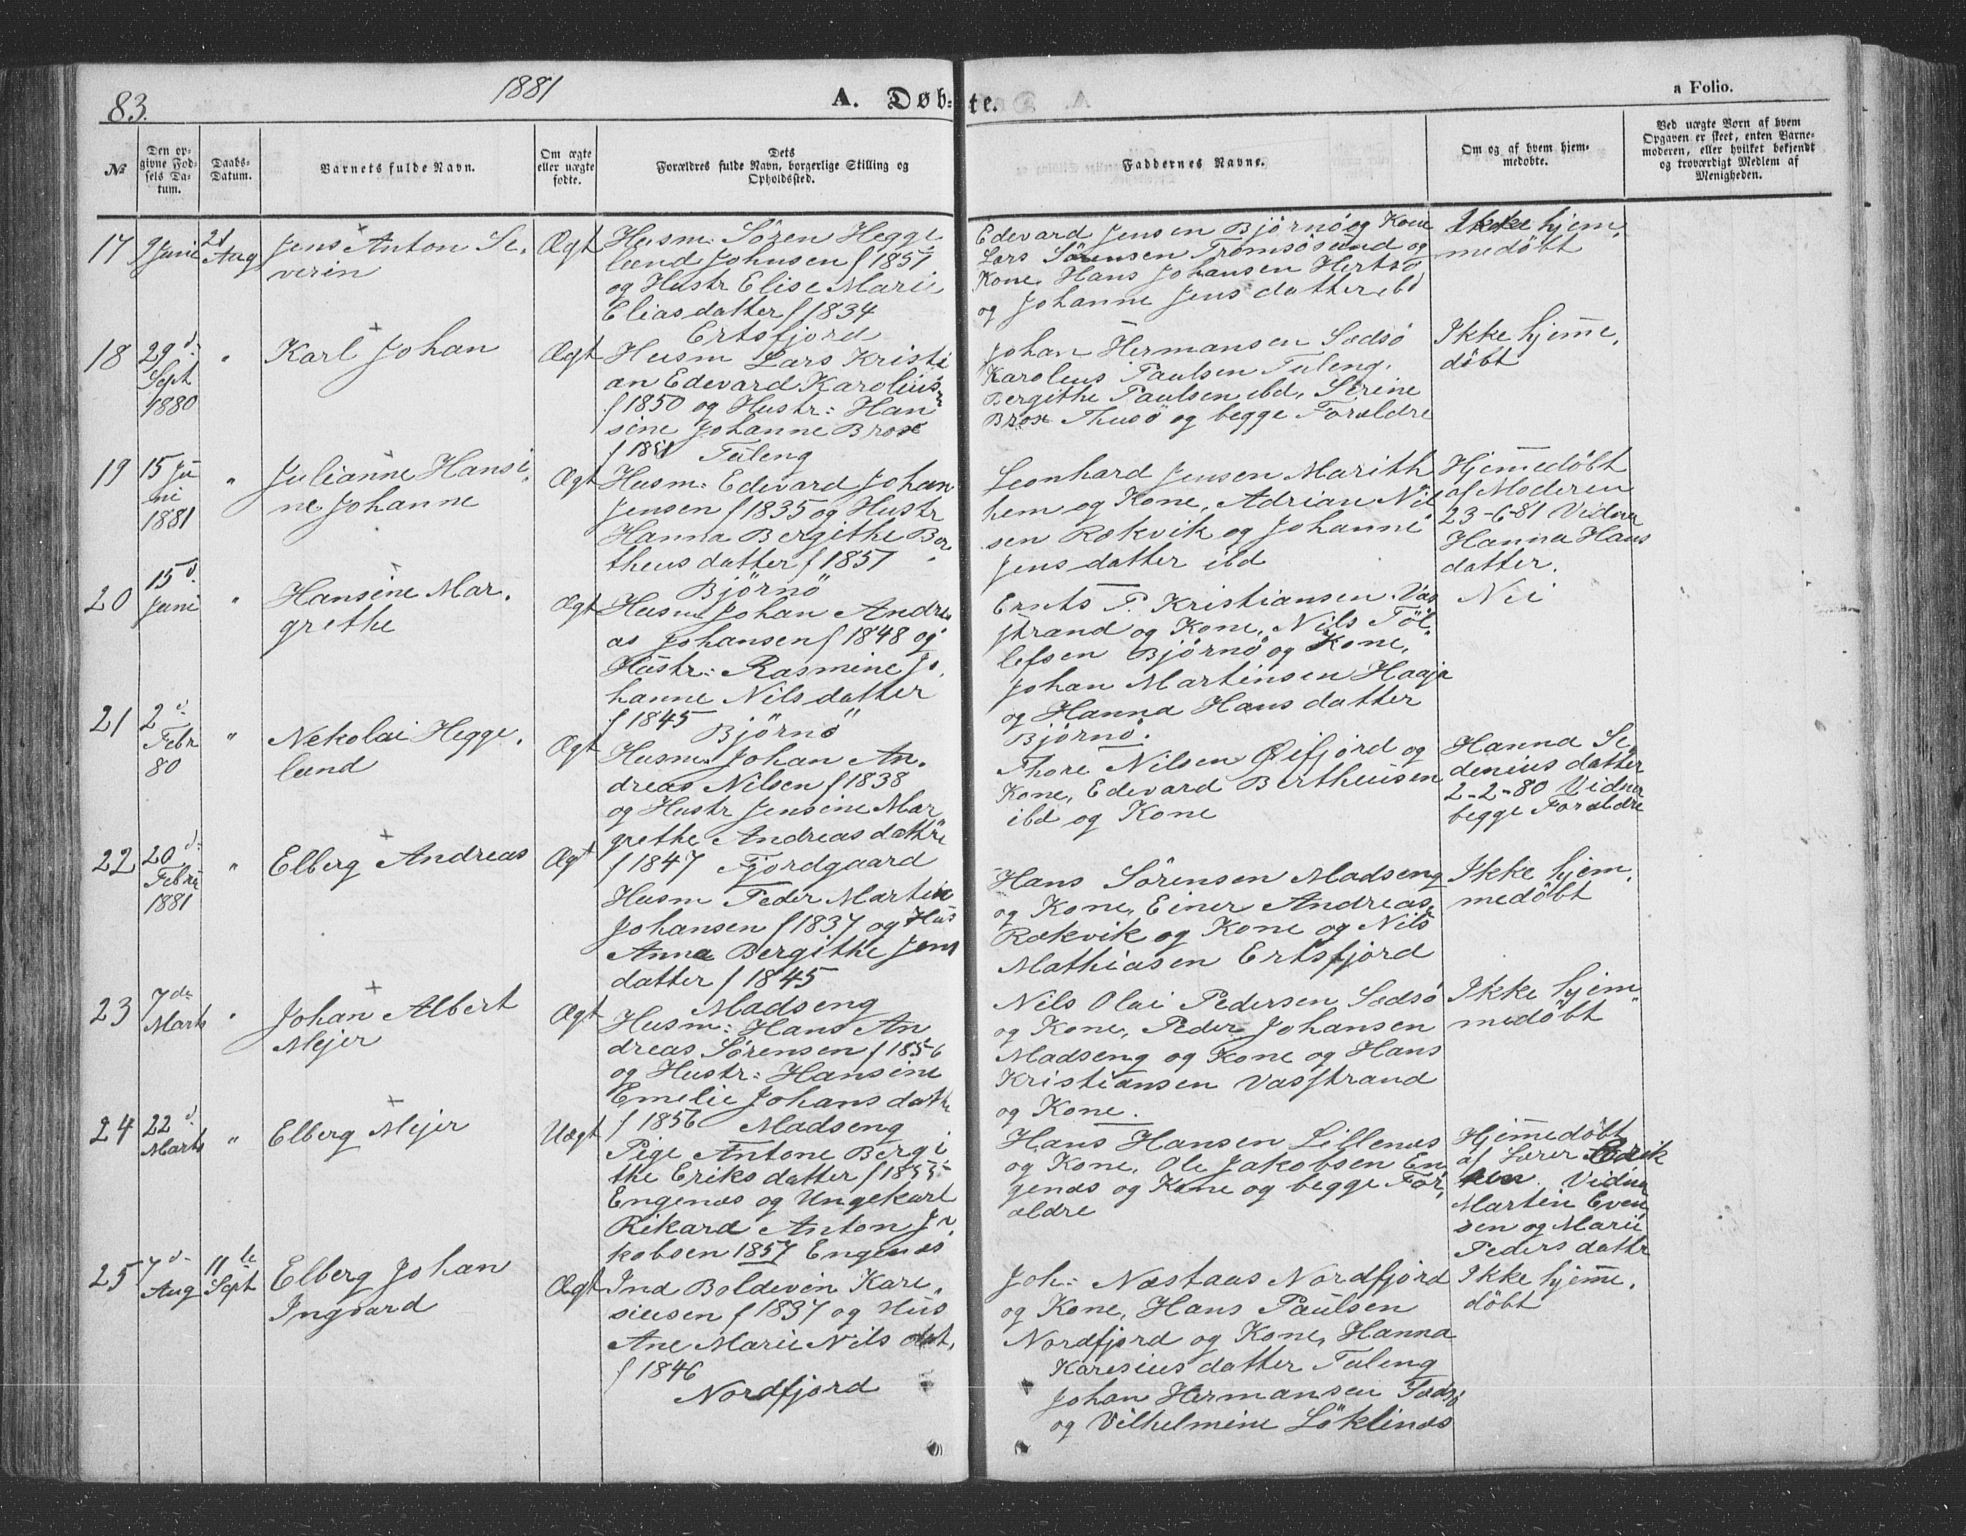 83.
1881
A. Døb-te.
a Folio.
№
Den opgivne Fødsels Datum.
Daabs-Datum.
Barnets fulde Navn.
Om ægte eller uægte fødte.
Dets Forældres fulde Navn, borgerlige Stilling og Opholdssted.
Faddernes Navne.
Om og af hvem hjemmedøbte.
Ved uægte Børn af hvem Opgaven er skeet, enten Barnemoderen, eller hvilket bekjendt og troværdigt Medlem af Menigheden.
17
9 Juni
21 Aug
Jens Anton Se-
verin
Ægt
Husm: Sören Hegge
lund Johnsen f 1851
og Hustr Elise Marie
Eliasdatter f 1834
Ertsfjord
Edevard Jensen Björnö og Kone
Lars Sörensen Tromsösund og
Kone, Hans Johansen Hertsö
og Johanne Jensdatter ibd
Ikke hjem,
medöbt
18
29 d.
Sept
1880
"
Karl Johan
Ægt
Husm Lars Kristi
an Edevard Karolius
f 1850 og Hustr: Han
sine Johanne Brox
f 1851 Tuleng
Johan Hermansen Sædsö
Karolius Paulsen Tuleng,
Bergithe Paulsen ibd, Serine
Brox Thusö og begge Forældre
Ikke hjemme,
döbt
19
15 Ju
ni
1881
"
Julianne Hansi,
ne Johanne
Ægt
Husm: Edevard Johan
Jensen f 1835 og Hustr
Hanna Bergithe Ber
theusdatter f 1857
Björnö
Leonhard Jensen Marith
hem og Kone, Adrian Nil
sen Rækvik og Johanne
Jensdatter ibd
Hjemmedöbt
af Moderen
23-6-81 Vidna
Hanna Hans
datter.
20
15 d.
Juni
"
Hansine Mar,
grethe
Ægt
Husm Johan Andre
as Johansen f 1848 og
Hustr: Rasmine Jo,
hanne Nilsdatter
f 1845 Björnö
P. Kristiansen Vas
strand og Kone, Nils Töl
lefsen Björnö og Kone,
Johan Martinsen Haaja
og Hanna Hansdatter
Björnö.
Nei
21
2 d.
Febr
80
"
Nekolai Hegge,
lund
Ægt
Husm. Johan An,
dreas Nilsen f 1838
og Hustr Jensine Mar
grethe Andreasdattr
f 1847 Fjordgaard
Thore Nilsen Øifjord og
Kone, Edevard Bertheusen
ibd og Kone
Hanna Se
deniusdatter
2-2-80 Vidna
begge Forældre
22
20 d.
Febru
1881
"
Elberg Andreas
Ægt
Husm Peder Martin
Johansen f 1837 og Hus
Anna Bergithe Jens
datter f 1845
Madseng
Hans Sörensen Madseng
og Kone, Einer Andreas,
Rækvik og Kone og Nils
Mathiasen Ertsfjord
Ikke hjem,
medöbt
23
7 de
Marts
"
Johan Albert
Mejer
Ægt
Husm: Hans An
dreas Sörensen f 1856
og Hustr: Hansine
Emilie Johansdatte
f 1856 Madseng
Nils Olai Pedersen Sædsö
og Kone, Peder Johansen
Madseng og Kone og Hans
Kristiansen Vasstrand
og Kone.
Ikke hjem
medöbt
24
22 d.
Marts
"
Elberg Mejer
Uægt
Pige Antone Bergi
the Eriksdatter f 1855
Engenæs og Ungekarl
Rikard Anton Ja
kobsen 1857 Engenæs
Hans Hansen Lillenæs
og Kone, Ole Jakobsen En
genæs og Kone og begge For,
ældre
Hjemmedöbt
af Lærer Erik
sen Vidna
Martin Even
sen og Marie
Pedersdattr
25
7 d.
Aug
11 te
Sept
Elberg Johan
Ingvard
Ægt
Ind Boldevin Kare,
siusen f 1837 og Hus
Ane Marie Nilsdat,
f 1846
Nordfjord
Joh: Næstaas Nordfjord
og Kone, Hans Paulsen
Nordfjord og Kone, Hanna
Karesiusdatter Tuleng
Johan Hermansen Sædsö
og Vilhelmine Löklinæs
Ikke hjemme,
döbt